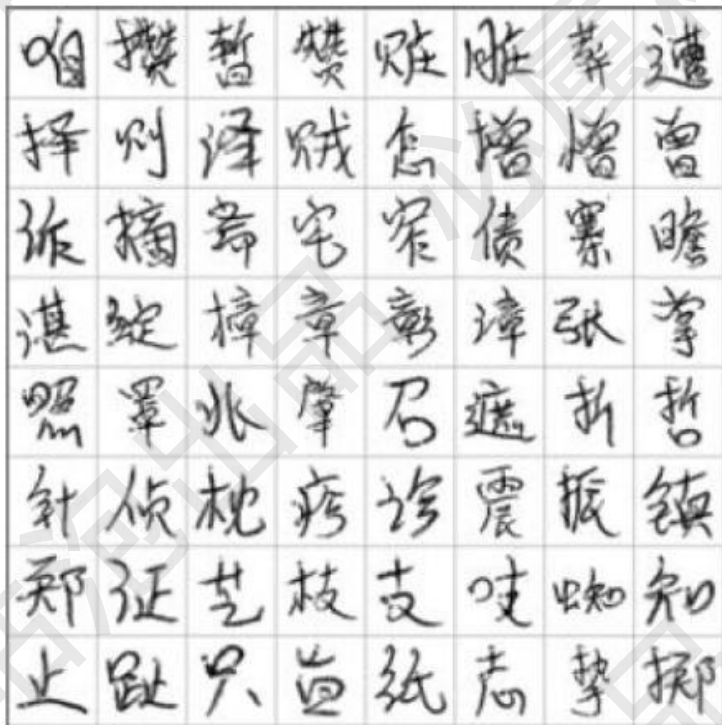 咱攒暂赞赃脏葬遭
择则泽贼怎增憎曾
诈摘斋宅窄债寨瞻
湛绽樟章彰漳张掌
照罩兆肇召遮折哲
针侦枕疹诊震振镇
郑征芝枝支吱蜘知
止趾只旨纸志挚掷
出品